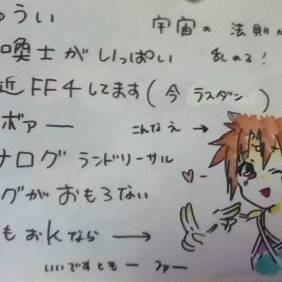 ゅうい
宇宙の 法則が
喚士がいっぱい
乱れる!
近FF4してます(今 ラスダン)
ボァー
こんなえ→
ナログ ランドリーサル
グがおもろない
もおkなら→
いいですともー ファー